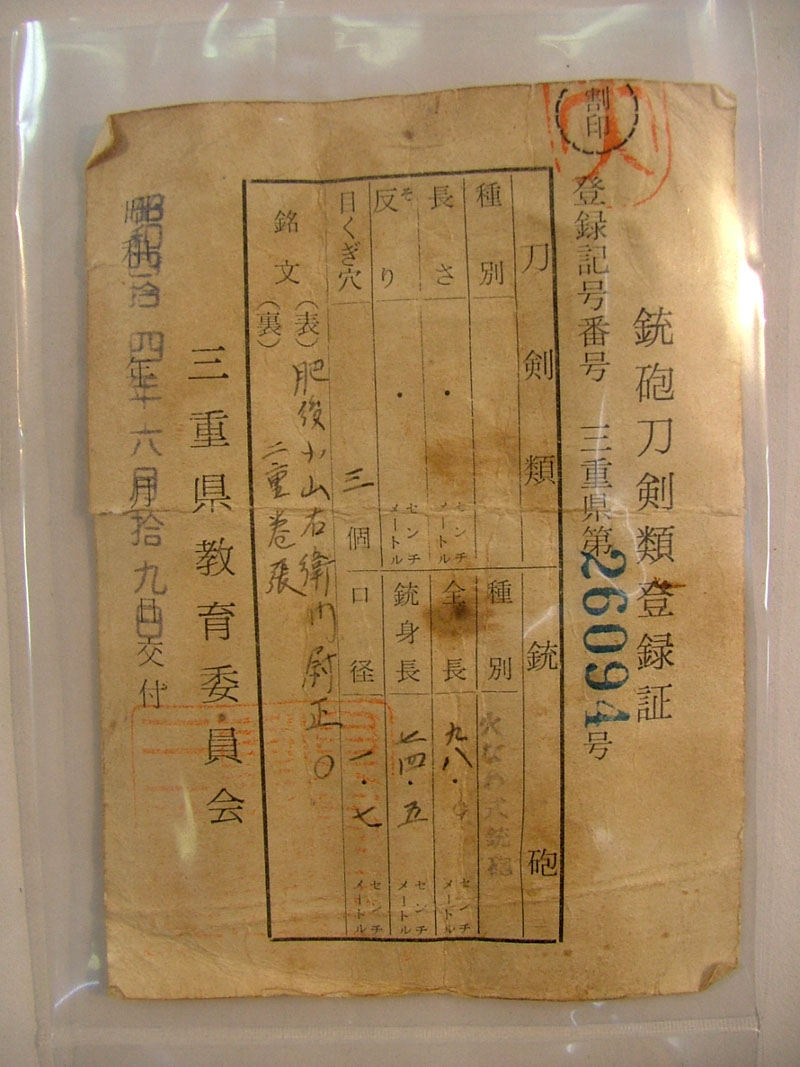 割印
銃砲刀剣類登録証
登録記号番号 三重県第26094号
刀剣類
種別
長さ ・ センチメートル
反り ・ センチメートル
そ
目くぎ穴 三個
銃砲
種別 火なわ式銃砲
全長 九八・ センチメートル
銃身長 七四・五 センチメートル
口径 一・七 センチメートル
銘文 (表) 肥後 小山右衛門尉正
(裏) 二重巻張
三重県教育委員会
昭和四拾四年六月拾九日交付